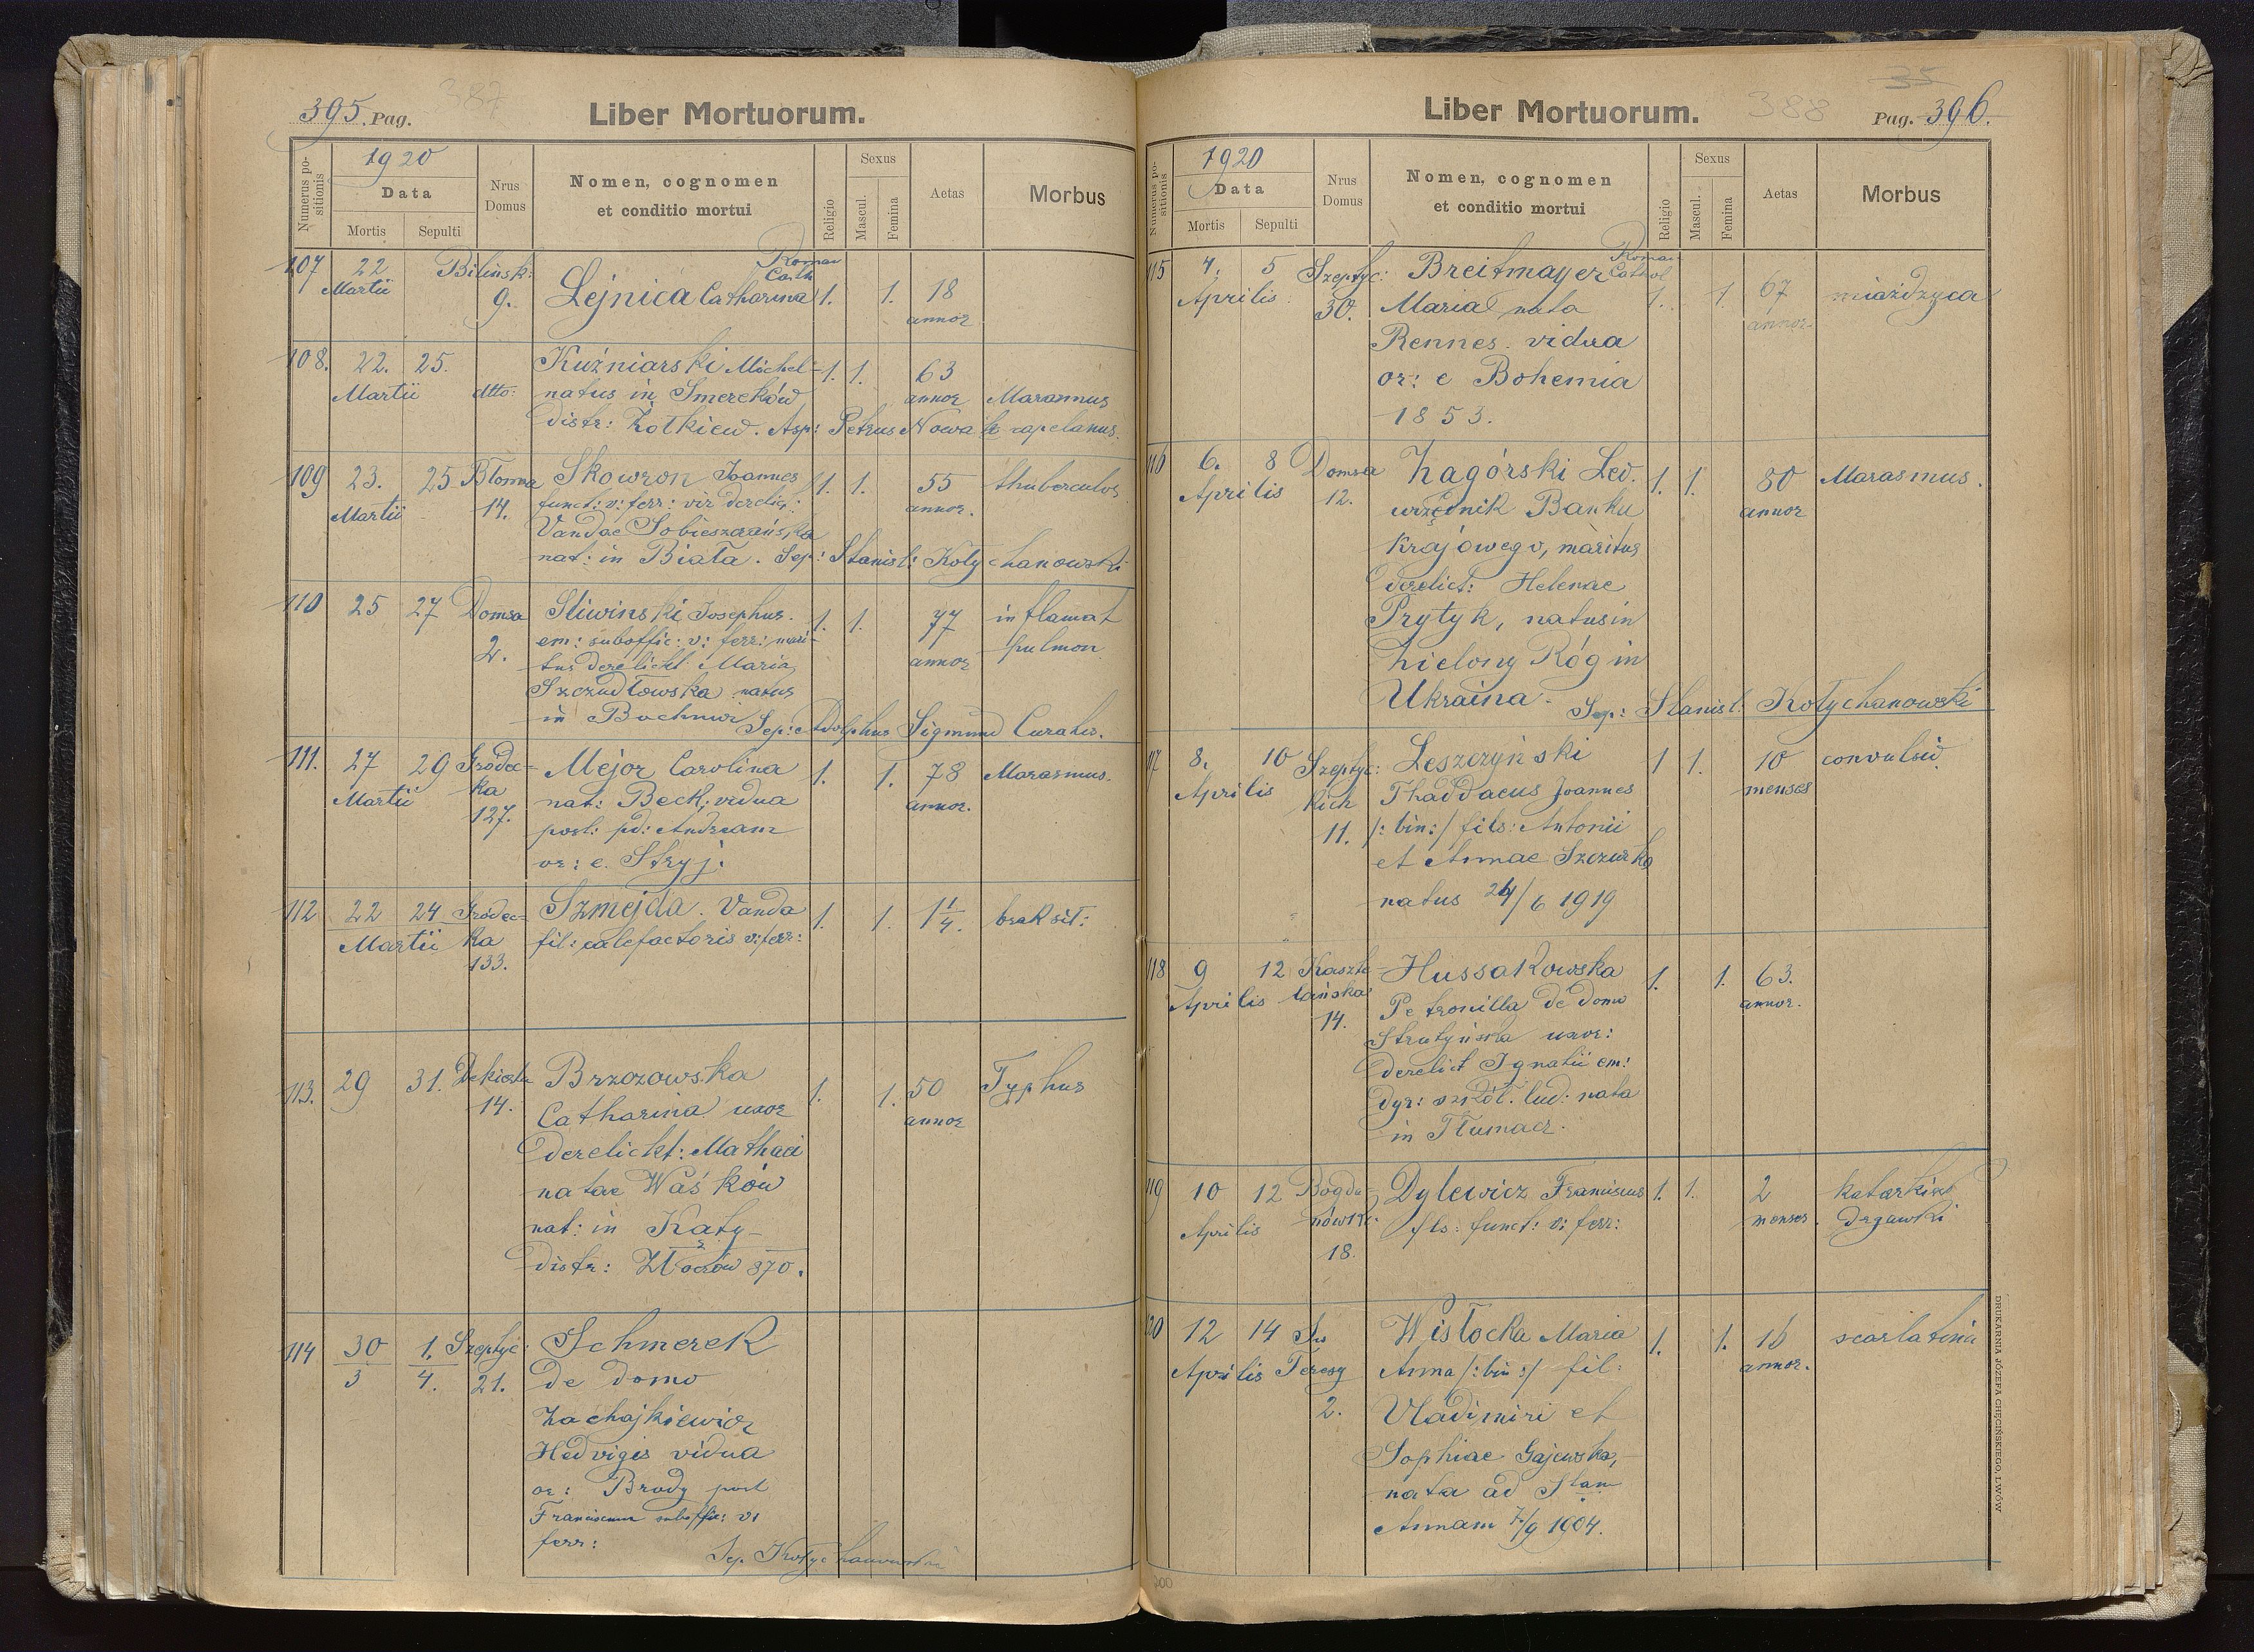 395. Pag.
387
Liber Mortuorum.
Numerus positionis
1920
Data
Mortis
Sepulti
Nrus Domus
Nomen, cognomen
et conditio mortui
Religio
Sexus
Mascul.
Femina
Aetas
Morbus
107 22 Bilińsk: Roman Cath
Martii 9. Lejnica Catharina 1. 1. 18
annor
108. 22. 25. Kuźniarski Michel- 1. 1. 63
Martii dtto: natus in Smereków annor Marasmus
distr: Żółkiew. Asp: Petrus Nowak capelanus.
109 23. 25 Błonna Skowron Joannes 1. 1. 55 thuberculos
Martii 14. funct: v: ferr: vir derelict: annor.
Vandae Sobieszczańska
nat: in Biała. Sep: Stanisl: Kotychanowski
110 25 27 Domsa Sliwinski Josephus. 1. 1. 77 inflamat
2. em: suboffic: v: ferr: mari- annor pulmon
tus derelickt Maria
Szczudłowska natus
in Bochnia Sep: Adolphus Sigmund Curatus.
111. 27 29 Gródec- Mejor Carolina 1. 1. 78 Marasmus.
Martii ka nat: Beck, vidua annor.
127. post: pd: Andream
or: e. Stryj.
112 22 24 Gródec- Szmejda. Vanda 1. 1. 1 1/4. brak sił:
Martii ka fil: calefactoris v: ferr:
133.
113. 29 31. Dekierta Brzozowska 1. 1. 50 Typhus
14. Catharina uxor annor
derelickt: Mathaei
natae Waśków
nat: in Katy-
distr: Złoczów 870.
114 30 1. Szeptyc: Schmerek
3 4. 21. de domo
Zachajkiewicz
Hedvigis vidua
or: Brody post
Franciscum suboffic: v:
ferr:
Sep. Kotychanowski
Liber Mortuorum.
388
35
Pag. 396.
Numerus positionis
1920
Data
Mortis
Sepulti
Nrus Domus
Nomen, cognomen
et conditio mortui
Religio
Sexus
Mascul.
Femina
Aetas
Morbus
115 4. 5 Szeptyc: Breitmayer Roman Cathol
Aprilis 30. Maria nata 1. 1. 67 miażdzyca
annor.
Rennes. vidua
or: e Bohemia
1853.
116 6. 8 Domsa Zagórski Leo. 1. 1. 80 Marasmus.
Aprilis 12. urzędnik Banku annor
Krajowego, maritus
derelict: Helenae
Prytyk, natus in
Zielony Róg in
Ukraina. Sep: Stanisl: Kotychanowski
117 8. 10 Szeptyc: Leszczyński 1 1. 10 convulsio
Aprilis kich Thaddaeus Joannes menses
11. /: bin:/ fils: Antonii
et Annae Szczurka
natus 24/6 1919
118 9 12 Kaszte- Hussakowska 1. 1. 63.
Aprilis lańska Petronilla de domo annor.
14. Strutyńska uxor:
derelict Ignatii em:
dyr: szkół. lud: nata
in Tłumacz.
119 10 12 Bogda- Dylewicz Franciscus 1. 1. 2
Aprilis nówk: fls: funct: v: ferr: menses. drgawki
18.
120 12 14 Św Wisłocka Maria 1. 1. 16 scarlatina
Aprilis Teresy Anna /: bin:/ fil: annor.
2. Vladimiri et
Sophiae Gajewska,
nata ad Stam
Annam 7/9 1904.
DRUKARNIA JÓZEFA CHĘCIŃSKIEGO, LWÓW